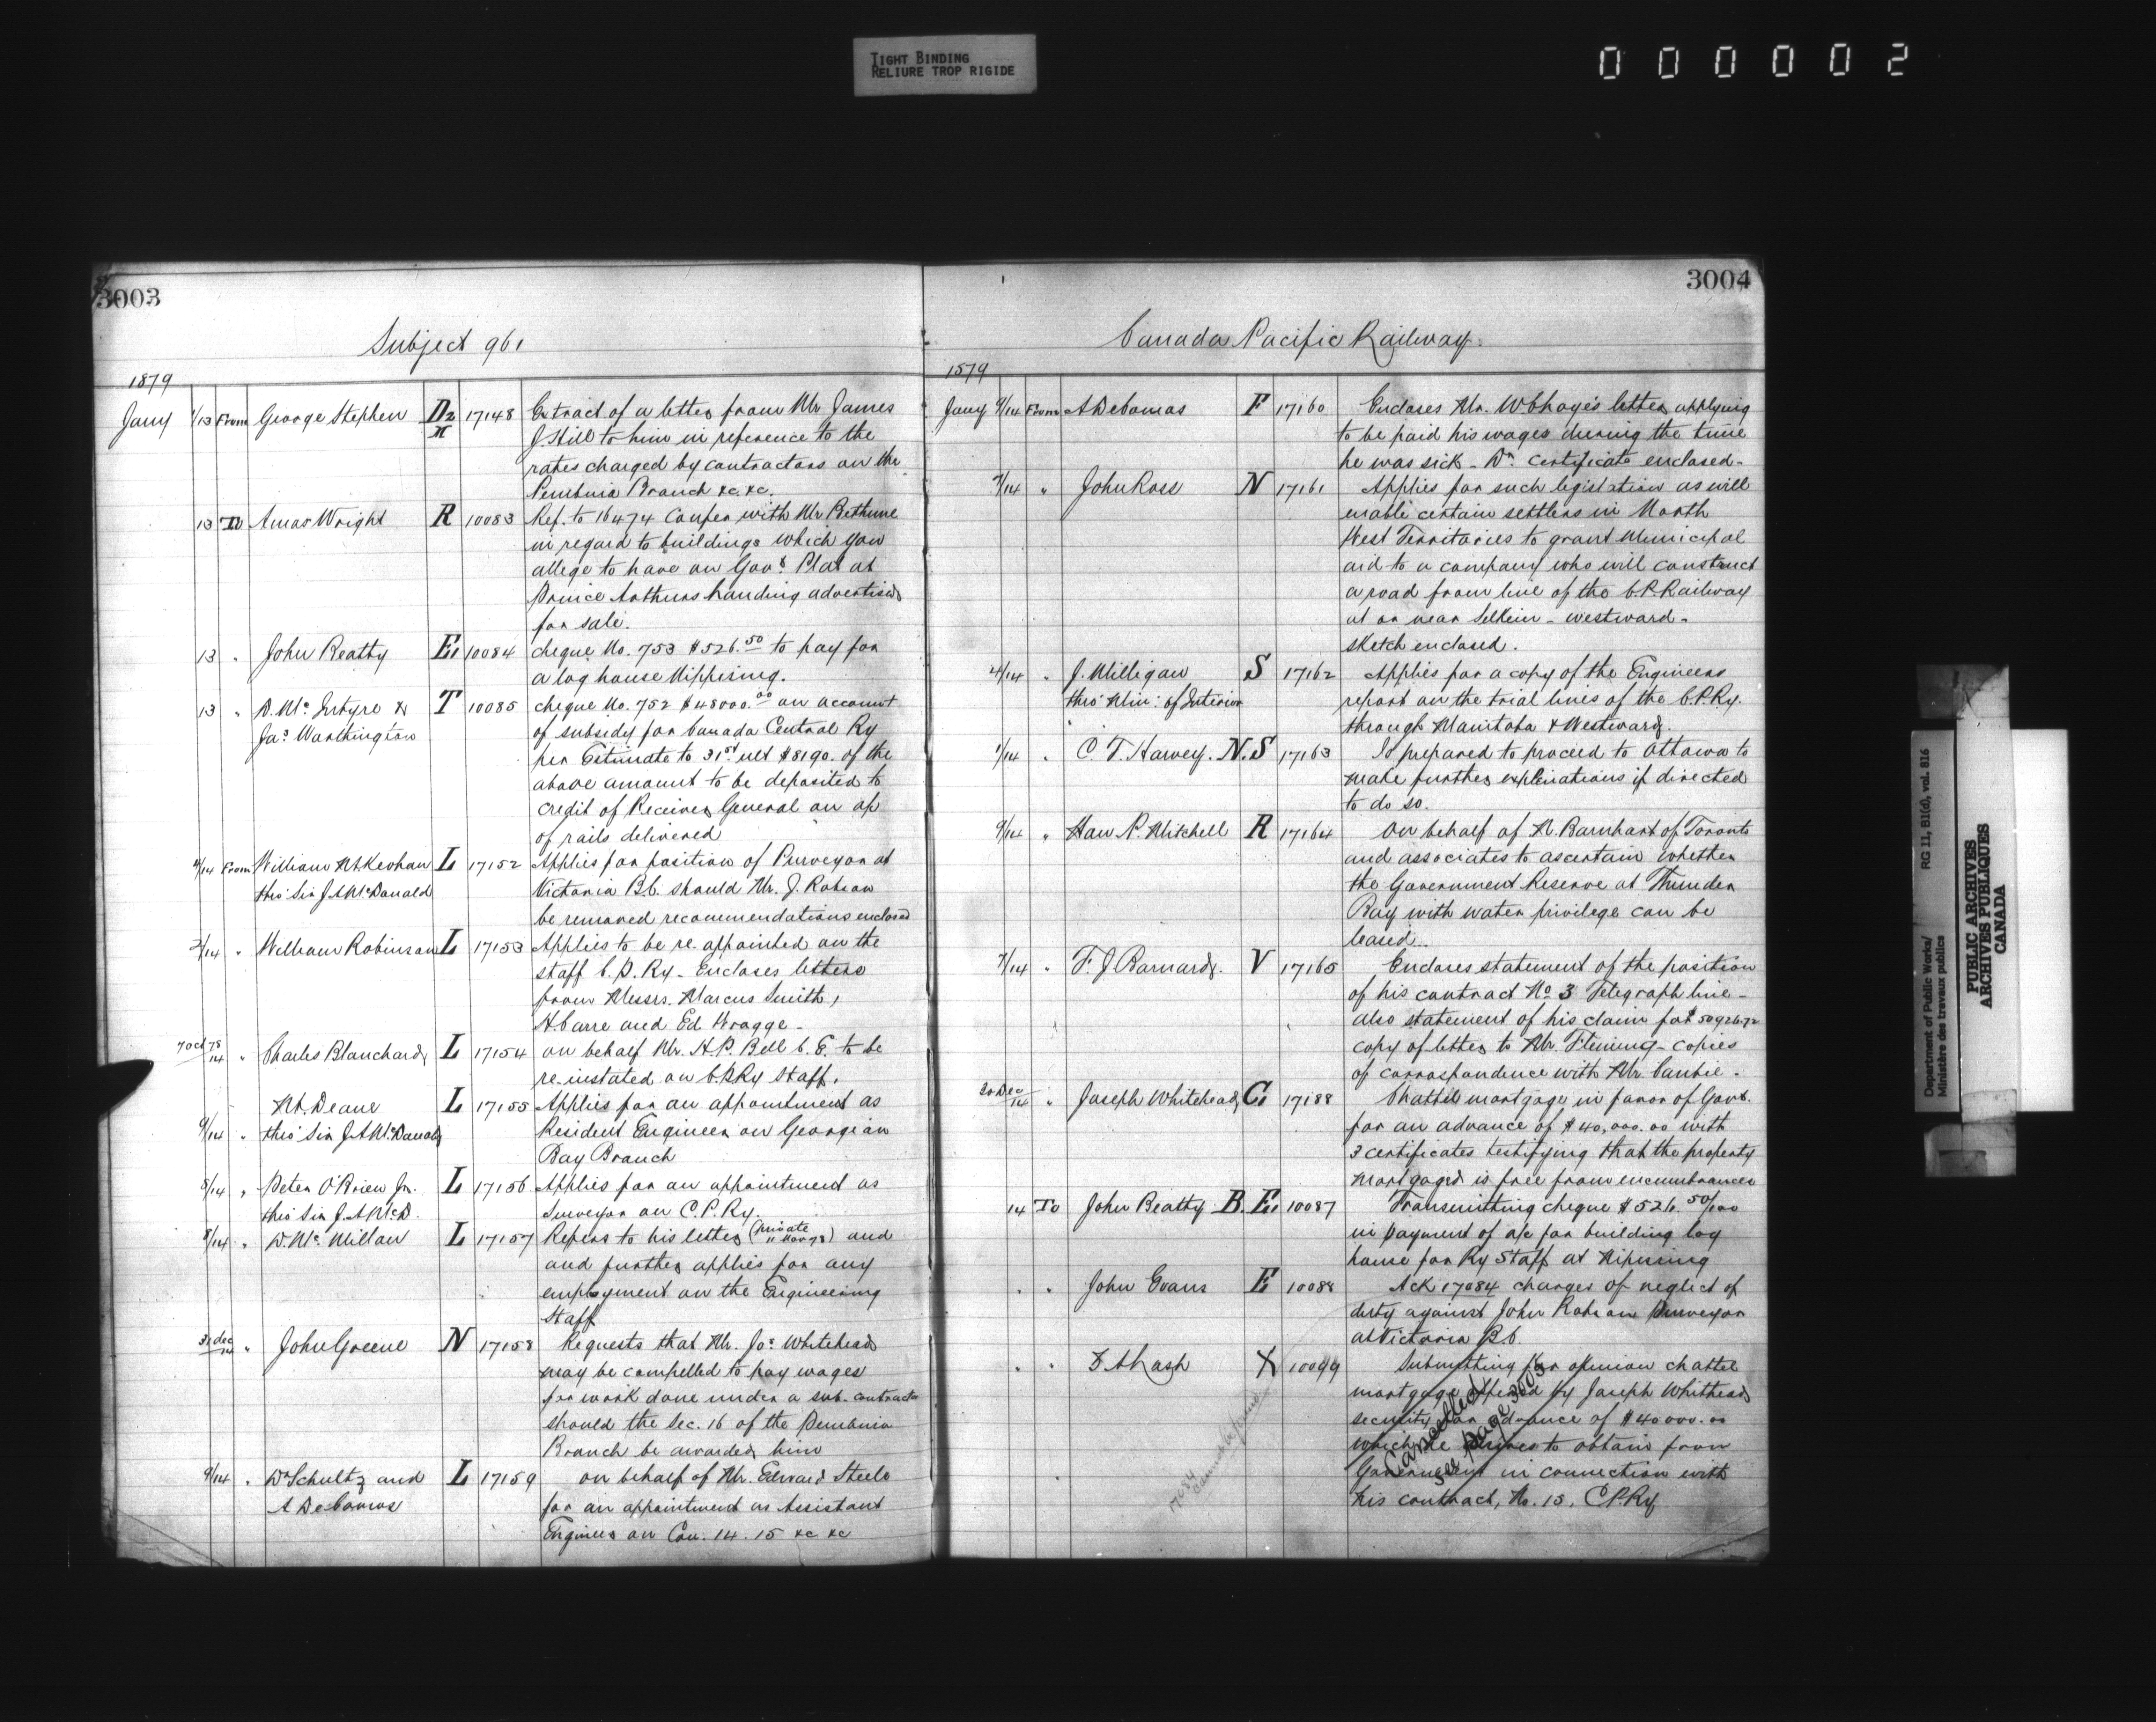 TIGHT BINDING
RELIURE TROP RIGIDE
000002
3003
Subject 961
1879
Jany 1/13 From George Stephen D2 H 17148 Extract of a letter from Mr James
J. Hill to him in reference to the
rates charged by contractors on the
Pembina Branch &c. &c.
13 To Amos Wright R 10083 Ref. to 16474 Confer with Mr Bethune
in regard to buildings which you
allege to have on Govt. Plat at
Prince Arthurs Landing advertised
for sale.
13 " John Beatty E1 10084 cheque No. 753 $526.50 to pay for
a log house Nippising.
13 " D. Mc Intyre & T 10085 cheque No. 752 $48000.00 on account
Jas Worthington of subsidy for Canada Central Ry
per Estimate to 31st ult $8190. of the
above amount to be deposited to
credit of Receiver General on a/c
of rails delivered
4/14 From William McKeohan L 17152 Applies for position of Purveyor at
thro' Sir J.A. McDonald Victoria B.C. should Mr. J. Robson
be removed recommendations enclosed
2/14 " William Robinson L 17153 Applies to be re-appointed on the
staff C.P. Ry - Encloses letters
from Messrs. Marcus Smith,
H Carre and Ed Wragge -
7 Oct 78/14 " Charles Blanchard L 17154 on behalf Mr. H.P. Bell C.E. to be
re-instated on C.P.Ry Staff.
M. Deane L 17155 Applies for an appointment as
9/14 " thro' Sir J.A. McDonald Resident Engineer on Georgian
Bay Branch
8/14 " Peter O'Brien Jr. L 17156 Applies for an appointment as
thro' Sir J.A. McD. Surveyor on C.P. Ry.
8/14 " D. Mc Millan L 17157 Refers to his letter (Private 11 Nov 78) and
and further applies for any
employment on the Engineering
Staff
31 dec/14 " John Greene N 17158 Requests that Mr. Jos Whitehead
may be compelled to pay wages
for work done under a sub-contract
should the Sec. 16 of the Pembina
Branch be awarded him
9/14 " Dr Schultz and L 17159 on behalf of Mr. Edward Steele
A DeCosmos for an appointment as Assistant
Engineer on Con. 14. 15 &c &c
3004
Canada Pacific Railway.
1879
Jany 9/14 From A DeCosmos F 17160 Encloses Mr. letter applying
to be paid his wages during the time
he was sick - Drs. Certificate enclosed -
7/14 " John Ross N 17161 Applies for such legislation as will
enable certain settlers in North
West Territories to grant Municipal
aid to a company who will construct
a road from line of the C.P. Railway
at or near Selkirk - westward -
sketch enclosed.
4/14 " J. Milligan S 17162 Applies for a copy of the Engineers
thro' Min: of Interior report on the trial lines of the C.P.Ry.
through Manitoba & Westward.
1/14 " C. T. Harvey. N.S 17163 Is prepared to proceed to Ottawa to
make further explanations if directed
to do so.
9/14 " Hon P. Mitchell R 17164 On behalf of N. Barnhart of Toronto
and associates to ascertain whether
the Government Reserve at Thunder
Bay with water privilege can be
leased.
7/14 " F. J. Barnard. V 17165 Encloses statement of the position
of his contract No 3 Telegraph line -
also statement of his claim for $50926.72
copy of letter to Mr. Fleming - copies
of correspondence with Mr. Cambie -
30 Dec/14 " Joseph Whitehead C1 17188 Chattel mortgage in favor of Govt.
for an advance of $40,000.00 with
3 certificates testifying that the property
mortgaged is free from encumbrances
14 To John Beatty B.E1 10087 Transmitting cheque $526.50/100
in payment of a/c for building log
house for Ry Staff at Nipissing
" " John Evans E 10088 Ack 17084 charges of neglect of
duty against John Robson Purveyor
at Victoria B.C.
" " Z A Lash X 10099 Submitting for opinion chattel
mortgage offered by Joseph Whitehead
security for advance of $40000.00
which he desires to obtain from
Government in connection with
his contract, No. 15, C.P.Ry
Cancelled
see page 3003
17084
cannot be found
Department of Public Works/ RG 11, B1(d), vol. 816
Ministère des travaux publics
PUBLIC ARCHIVES
ARCHIVES PUBLIQUES
CANADA